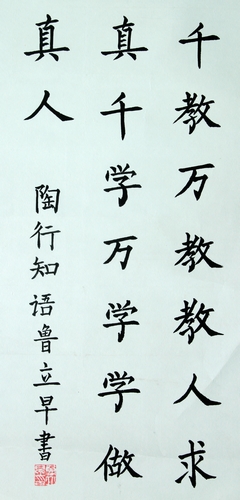 千教万教教人求
真千学万学学做
真人
陶行知语鲁立早書